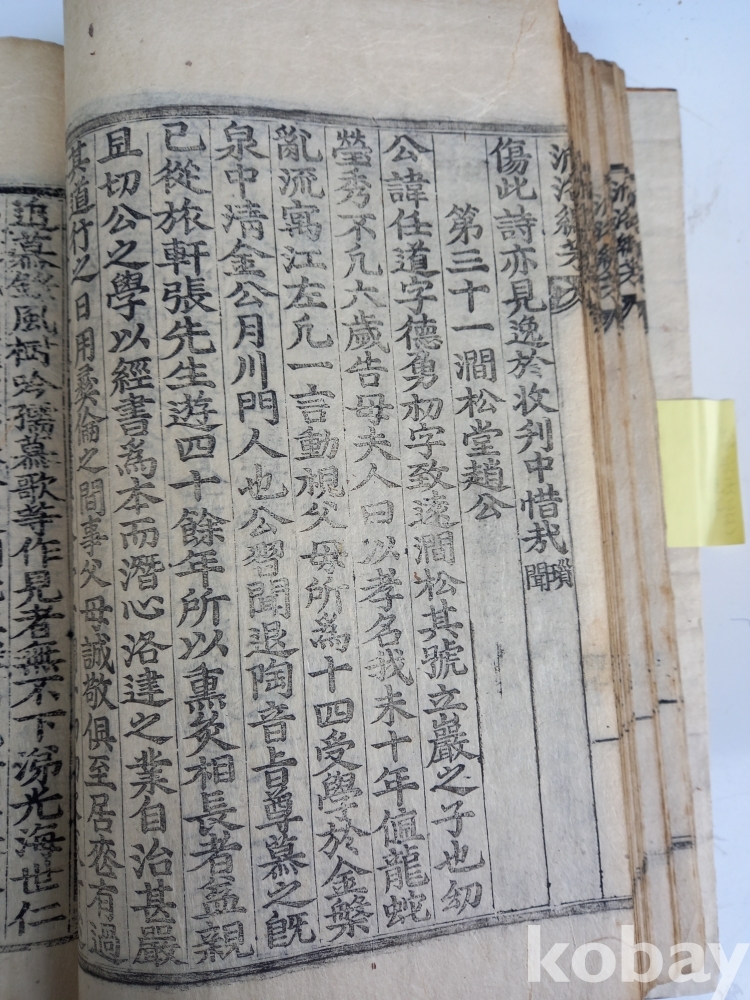 傷此詩亦見逸於收刋中惜㢤瑣聞
第三十一澗松堂趙公
公諱任道字德勇初字致遠澗松其號立巖之子也幼
瑩秀不凡六歲告母夫人曰以孝名我未十年値龍蛇
亂流寓江左凡一言動視父母所爲十四受學於金槃
泉中淸金公月川門人也公習聞退陶音旨尊慕之旣
已從旅軒張先生遊四十餘年所以熏炙相長者益親
且切公之學以經書爲本而潛心洛建之業自治甚嚴
其道行之日用彛倫之間事父母誠敬俱至居䘮有過
追慕錄風樹吟孺慕歌等作見者無不下涕光海世仁
kobay